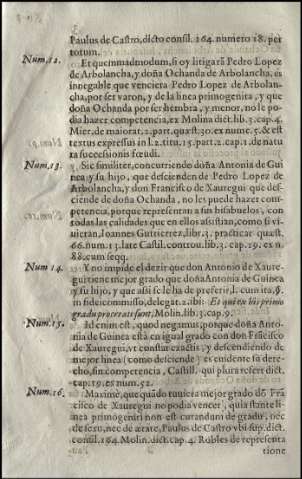 Paulus de Castro, dicto consil. 164. numero 18. per
totum.
Num. 12.
Et quemmadmodum, si oy litigarã Pedro Lopez
de Arbolancha, y doña Ochanda de Arbolancha, es
innegable que venciera Pedro Lopez de Arbolan-
cha, por ser varon, y de la linea primogenita, y que
doña Ochanda por ser hembra, y menor, no le po-
dia hazer competencia, ex Molin. dict. lib. 3. cap. 4.
Mier. de maiorat. 2. part. quæst. 30. ex nume. 5. & est
textus expressus in l. 2. titu. 15. part. 2. cap. 1. de natu
ra successionis fœudi.
Num. 13.
Sic similiter, concurriendo doña Antonia de Gui
nea y su hijo, que descienden de Pedro Lopez de
Arbolancha, y don Francisco de Xauregui que des-
ciende de doña Ochanda, no les puede hazer com-
petencia, porque representan a sus bisabuelos, con
todas las calidades que en ellos assistian, como si vi-
uieran, Ioannes Gutierrez, libr. 3. practicar. quæst.
66. num. 13. late Castil. controu. lib. 3. cap. 19. ex n.
88. cum seqq.
Num 14.
Y no impide el dezir que don Antonio de Xaure-
gui tiene mejor grado que doña Antonia de Guinea
y su hijo, y que assi se le ha de preferir l. cum ita, §.
in fideicommisso, de legat. 2. ibi: Et qui ex his primo
gradu procreati sunt, Molin. lib. 3. cap. 9.
Num. 15.
Id enim est, quod negamus, porque doña Anto-
nia de Guinea està en igual grado con don Frãcisco
de Xauregui, vt constat ex actis, y descendiendo de
mejor linea (como desciende) es euidente su dere-
cho, sin competencia, Castill. qui plura refert dict.
cap. 19. ex num. 52.
Num. 16.
Maxime, que quãdo tuuiera mejor grado dõ Frã
cisco de Xauregui no podia vencer, quia stante li-
nea primogeniri non est curandum de gradu, nec
de sexu, nec de ætate, Paulus de Castro vbi sup. dict.
consil. 164. Molin. dict. cap. 4. Robles de representa
tione